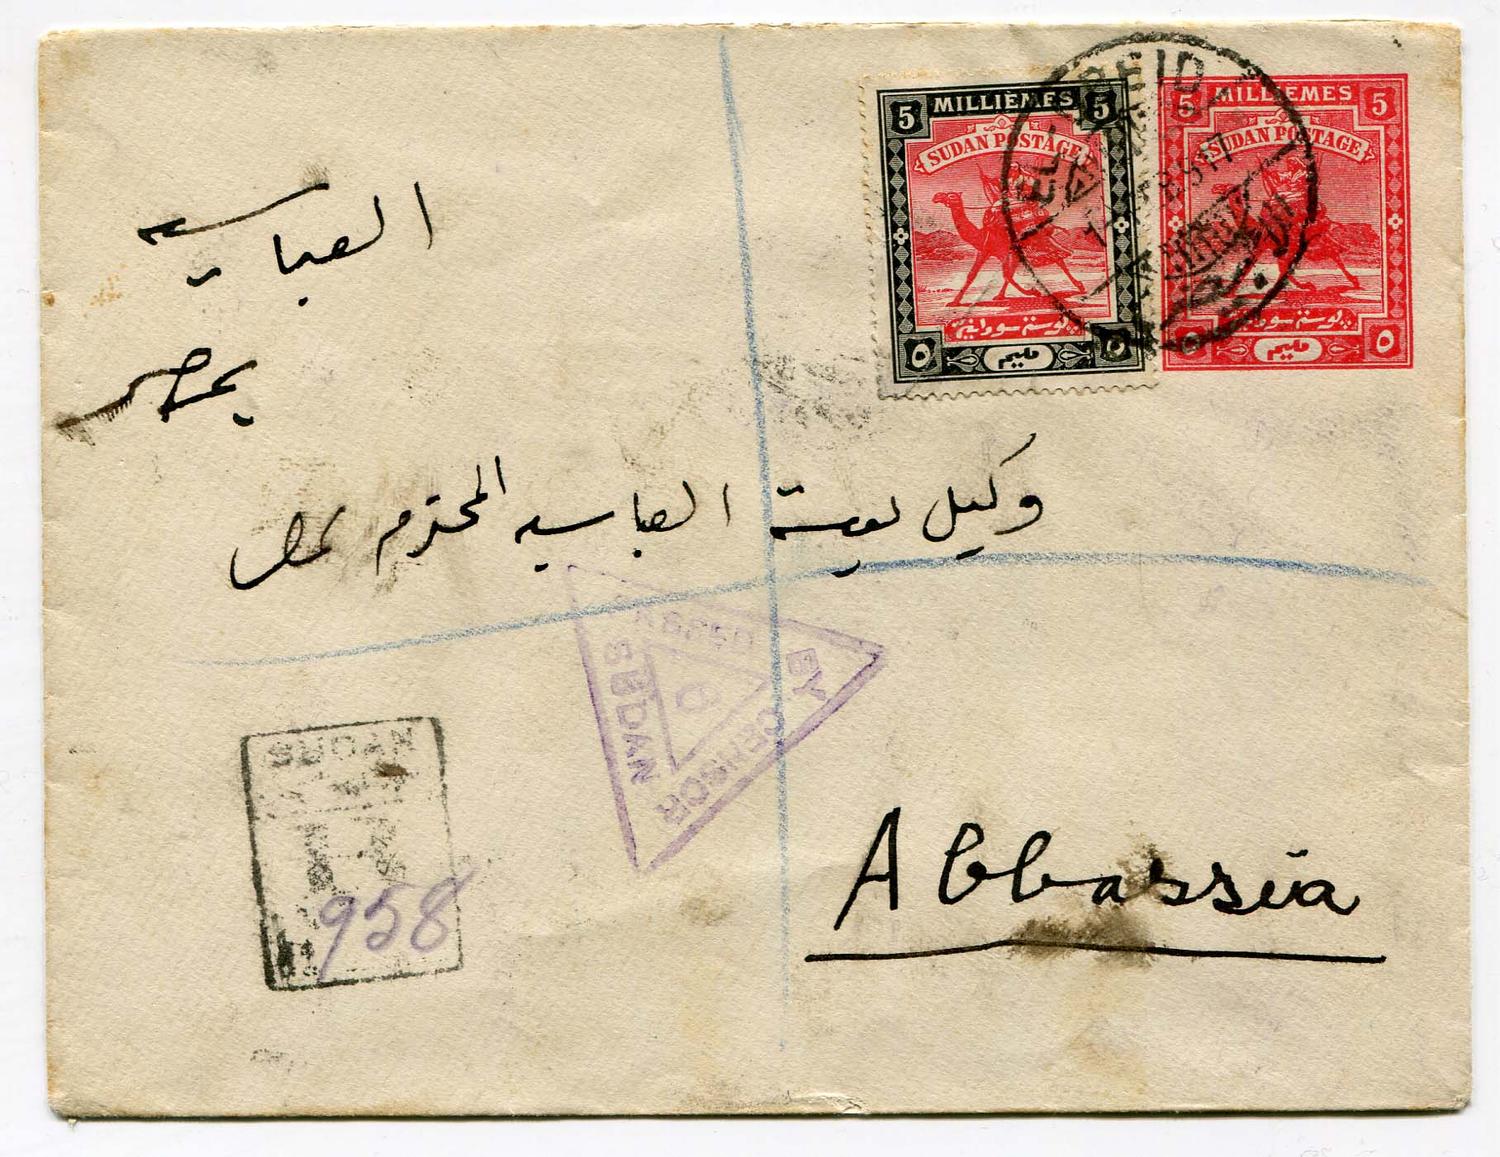 5 MILLIÈMES 5
SUDAN POSTAGE
بوستة سودانية
٥ مليم ٥
5 MILLIEMES 5
SUDAN POSTAGE
بوستة سودانية
٥ مليم ٥
EL OBEID
17
العباسية
بمصر
وكيل بوستة العباسيه المحترم بمصر
PASSED BY CENSOR
SUDAN
6
SUDAN
R
958
Abbassia